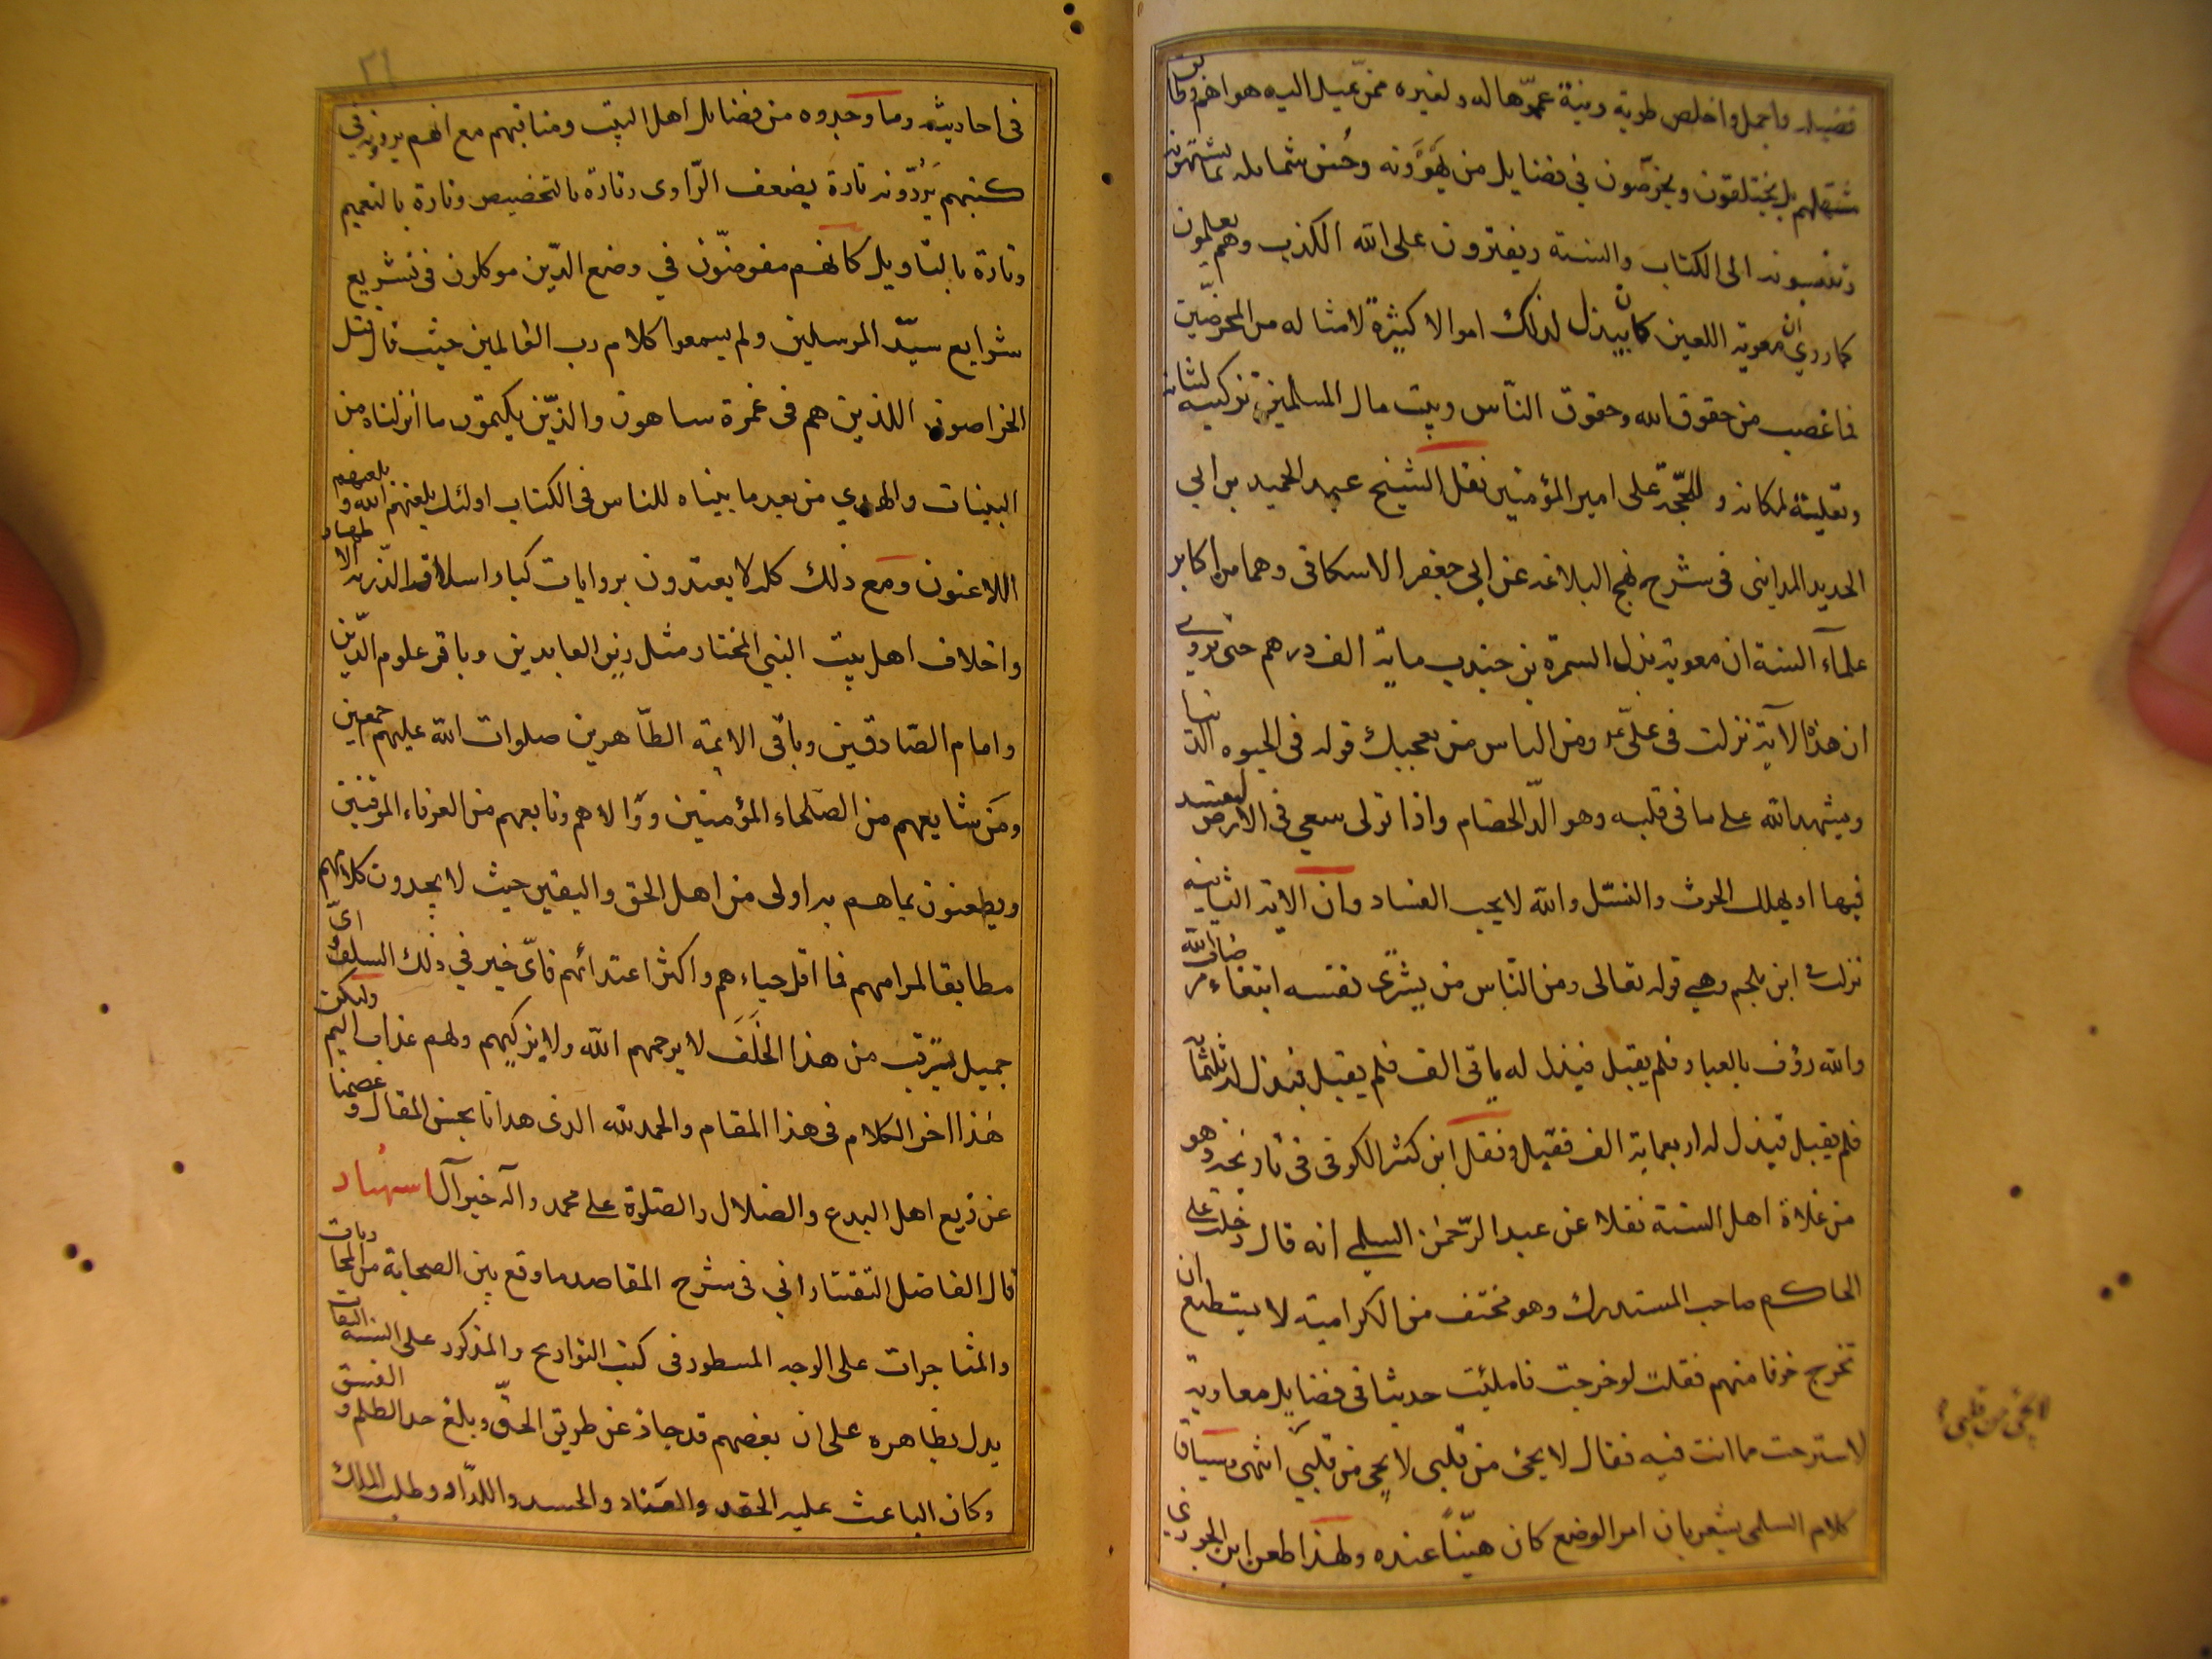 فضيلة واجمل واخلص طوية ونية عمّوها له ولغيره ممن عيل اليه هواهم
بل يختلقون ويخرصون فى فضايل من يهوونه وحُسن شمايله مما يشتهونه
وينسبونه الى الكتاب والسنة ويفترون على الله الكذب وهم يعلمون
كما روي ان معوية اللعين كان يبذل لذلك اموالا كثيرة لامثاله من المحرضين
فما غصب من حقوق الله وحقوق الناس وبيت مال المسلمين تزكية لشانه
وتعلية لمكانه و للحجة على امير المؤمنين نقل الشيخ عبد الحميد بن ابي
الحديد المدايني فى شرح نهج البلاغه عن ابي جعفر الاسكافى وهما من اكابر
علمآء السنة ان معوية بذل السمرة بن جندب ماية الف درهم حتى يروى
ان هذه الآية نزلت فى علىّ ومن الناس من يعجبك قوله فى الحيوه الدنيا
ويشهد الله على ما فى قلبه وهو الدّ الخصام واذا تولى سعى فى الارض ليفسد
فيها او يهلك الحرث والنسل والله لا يحب الفساد وان الاية الثانية
نزلت فى ابن ملجم وهى قوله تعالى ومن الناس من يشرى نفسه ابتغاء مرضات الله
والله رؤف بالعباد فلم يقبل فبذل له مايتى الف فلم يقبل فبذل له ثلثمآ
فلم يقبل فبذل له اربعماية الف فقبل ونقل ابن كثير الكوفى فى تاريخه وهو
من غلاة اهل السنة نقلا عن عبد الرّحمن السلمى انه قال دخلت على
الحاكم صاحب المستدرك وهو مختف من الكرامية لا يستطيع ان
تخرج خوفا منهم فقلت لو خرجت فامليت حديثا فى فضايل معاوية
لاسترحت مما انت فيه فقال لا يجئ من قلبى لا يجئ من قلبى انتهى وسياق
كلام السلمى يشعر بان امر الوضع كان هيّناً عنده ولهذا طعن ابن الجوزي
لا يجئ من قلبى
٢١
فى احاديثه وما وجدوه من فضايل اهل البيت ومناقبهم مع انهم يروونه فى
كتبهم يَردّونه تارة بضعف الرّاوى وتارة بالتخصيص وتارة بالتعميم
وتارة بالتاويل كانهم مفوضّون في وضع الدّين موكلون فى تشريع
شرايع سيّد المرسلين ولم يسمعوا كلام رب العالمين حيث قال قتل
الخراصون اللذين هم فى غمرة ساهون والذّين يكتمون ما انزلناه من
البينات والهدي من بعد ما بيناه للناس فى الكتاب اولئك يلعنهم الله و يلعنهم
اللاعنون ومع ذلك كله لا يعتدون بروايات كبار اسلاف الذرية الاطهار
واخلاف اهل بيت النبي المختار مثل زين العابدين وباقر علوم الدّين
وامام الصّادقين وباقى الائمة الطّاهرين صلوات الله عليهم اجمعين
ومَن شايعهم من الصلحاء المؤمنين ووالاهم وتابعهم من العرفاء الموقنين
ويطعنون بما هم به اولى من اهل الحق واليقين حيث لا يجدون كلامهم
مطابقا لمرامهم فما اقل حياءهم واكثر اعتدائهم فاىّ خير في ذلك السلف و اىّ
جميل يترتب من هذا الخَلَفَ لا يرحمهم الله ولا يزكيهم ولهم عذاب اليم وليكن
هٰذا اخر الكلام فى هذا المقام والحمد لله الذى هدانا بحسن المقال و عصمنا
عن زيع اهل البدع والضلال والصّلوة على محمد واله خير آل اسنهاد
قال الفاضل التفتازانى فى شرح المقاصد ما وقع بين الصحابة من المحاربات
والمشاجرات على الوجه المسطور فى كتب التواريخ والمذكور على السنة الثقات
يدل بظاهره على ان بعضهم قد جاز عن طريق الحقّ وبلغ حد الظلم و الفسق
وكان الباعث عليه الحقد والعناد والحسد واللّداد وطلب الملك